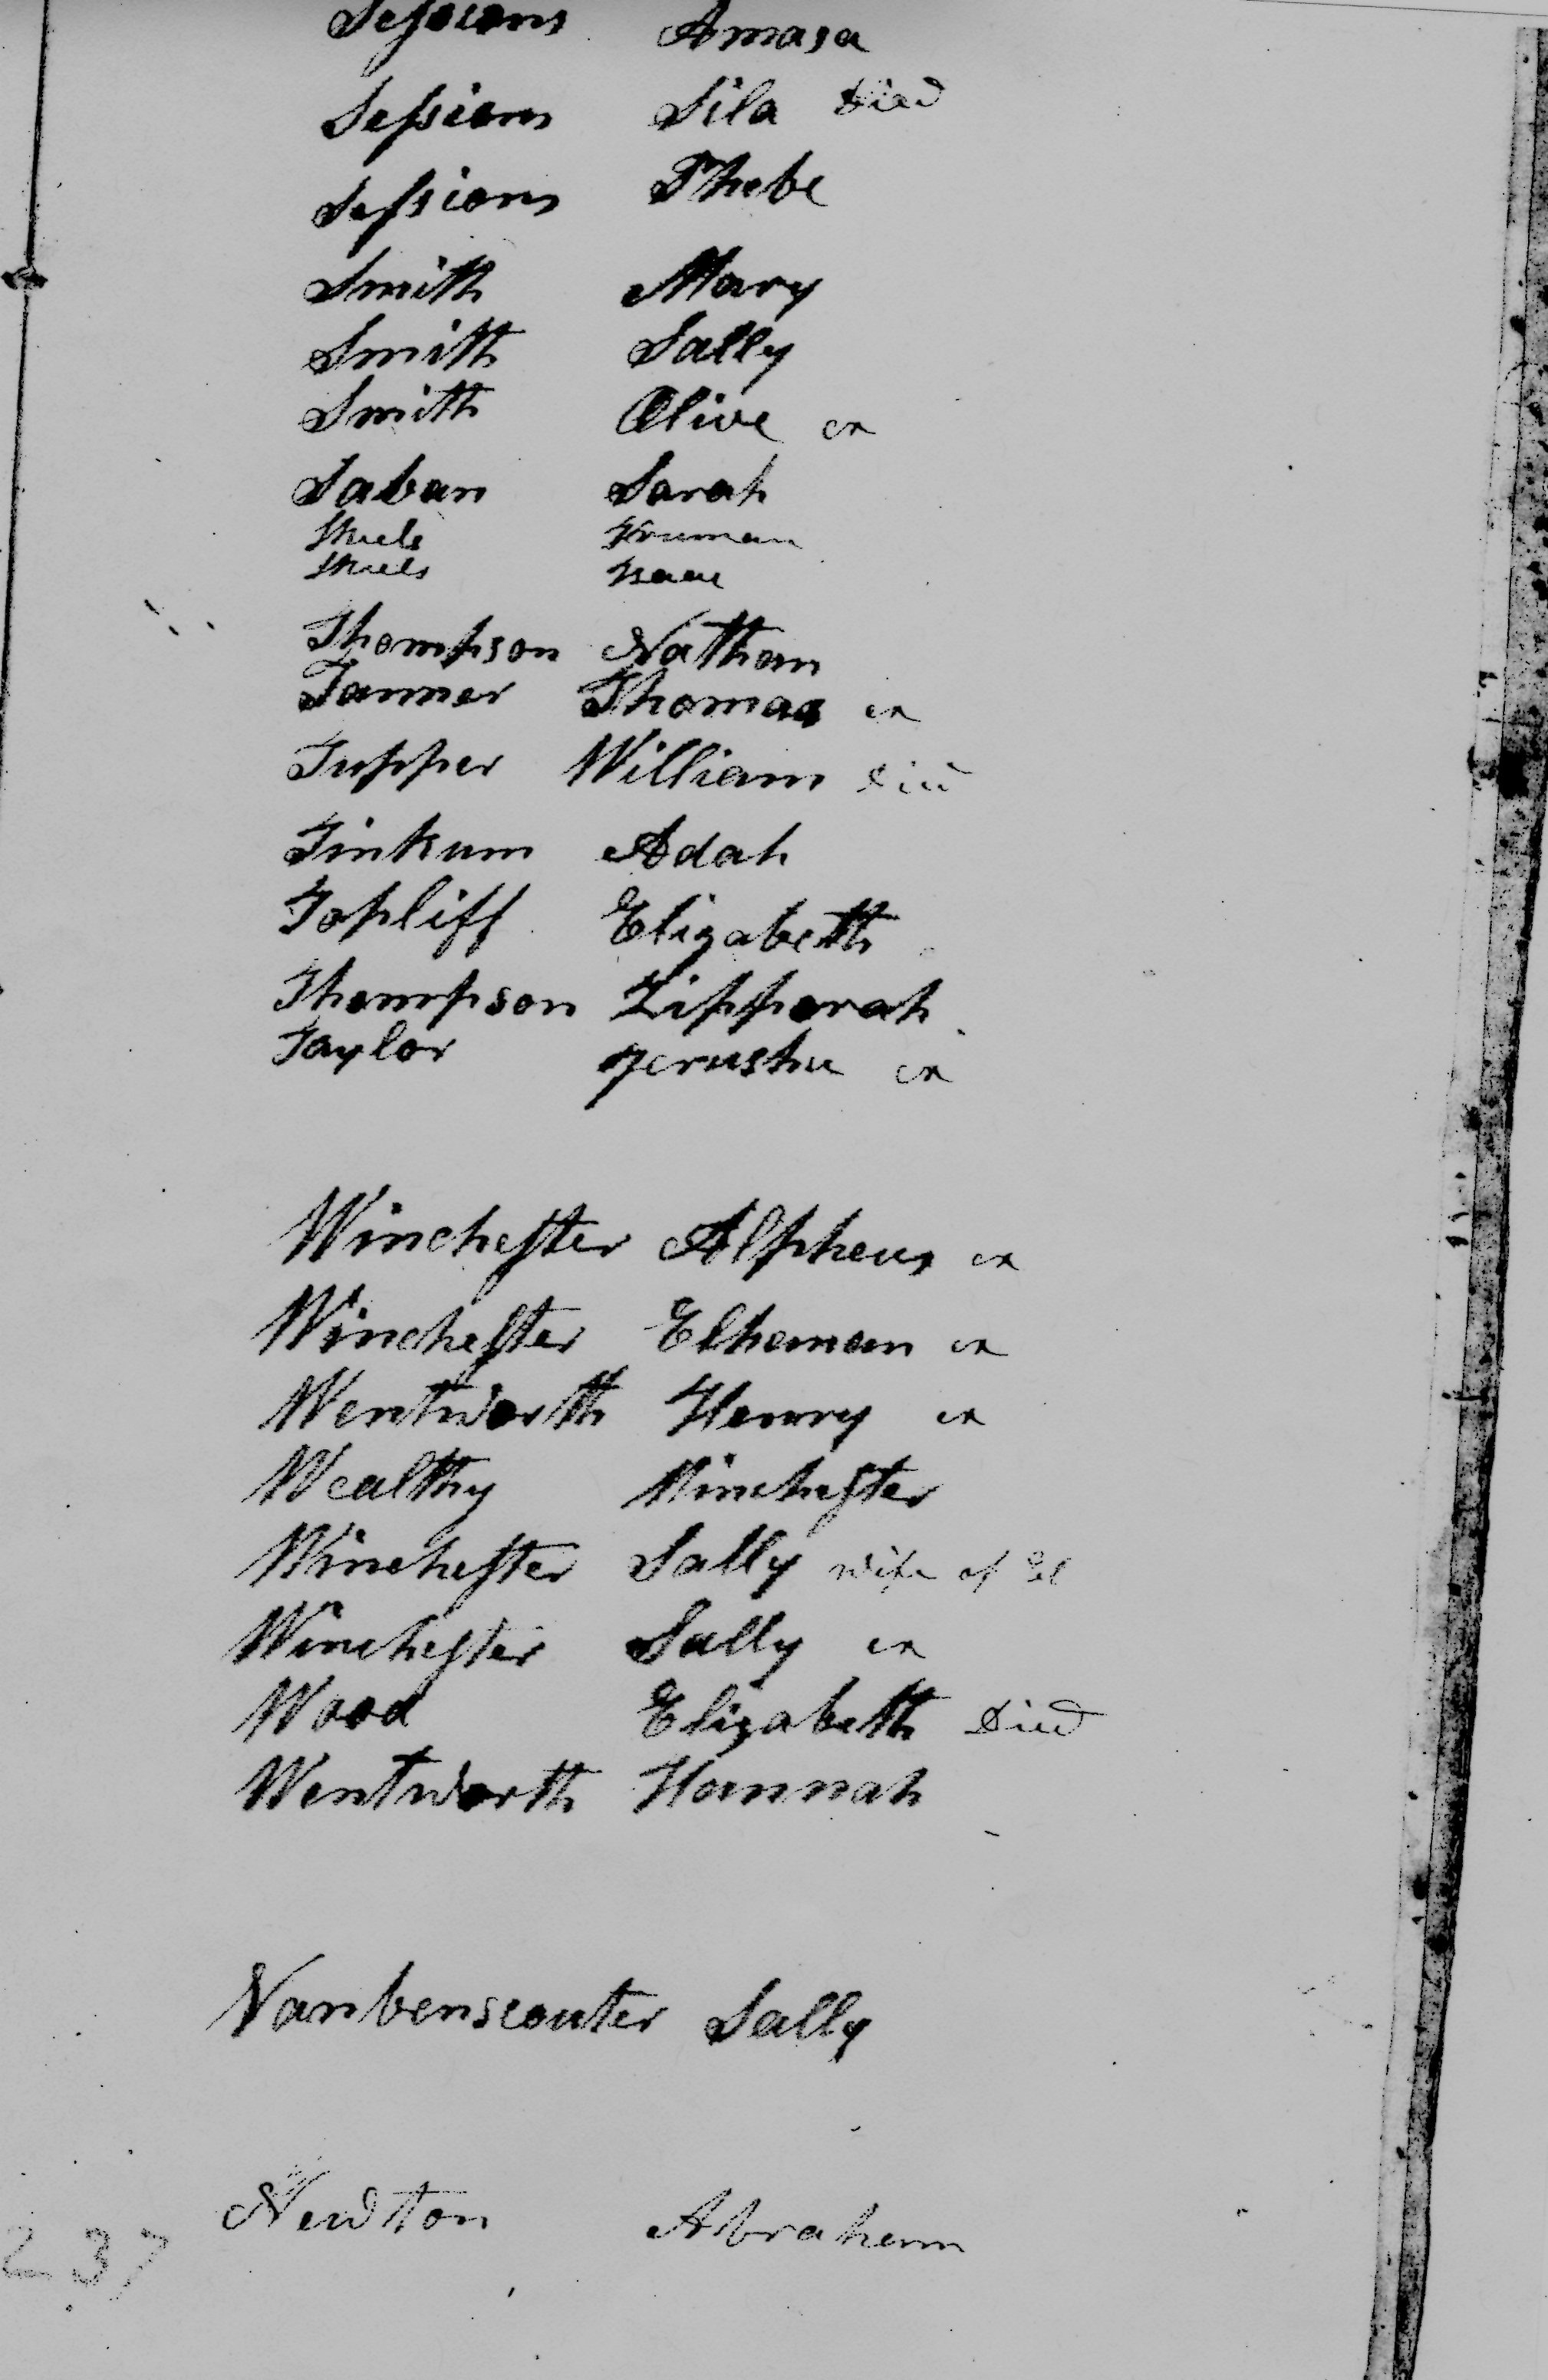 Sessions Amasa
Sessions Sila Died
Sessions Phebe
Smith Mary
Smith Sally
Smith Olive ex
Saban Sarah
Truman
Isaac
Thompson Nathan
Tanner Thomas ex
Tupper William Died
Tinkum Adah
Topliff Elizabeth
Thompson Zipporah
Taylor Jerusha ex
Winchester Alpheus ex
Winchester Elhanan ex
Wentworth Henry ex
Wealthy Winchester
Winchester Sally wife of El
Winchester Sally ex
Wood Elizabeth Died
Wentworth Hannah
Vanbenscouter Sally
Newton Abraham
237